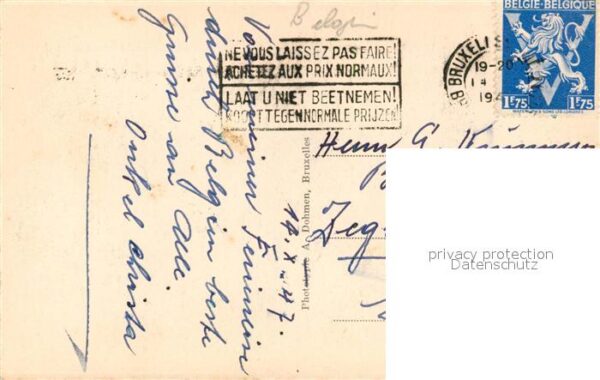 Belgien
NE VOUS LAISSEZ PAS FAIRE!
ACHETEZ AUX PRIX NORMAUX!
LAAT U NIET BEETNEMEN!
KOOPT TEGEN NORMALE PRIJZEN
BRUXELLES
19-20
14
194
BELGIE-BELGIQUE
1F75 1F75
Von meiner Ferienreise
durch Belgien beste
Grüsse an Alle.
Onkel Christa
14. X. 47.
Phototypie A. Dohmen, Bruxelles
Herrn G.
privacy protection
Datenschutz